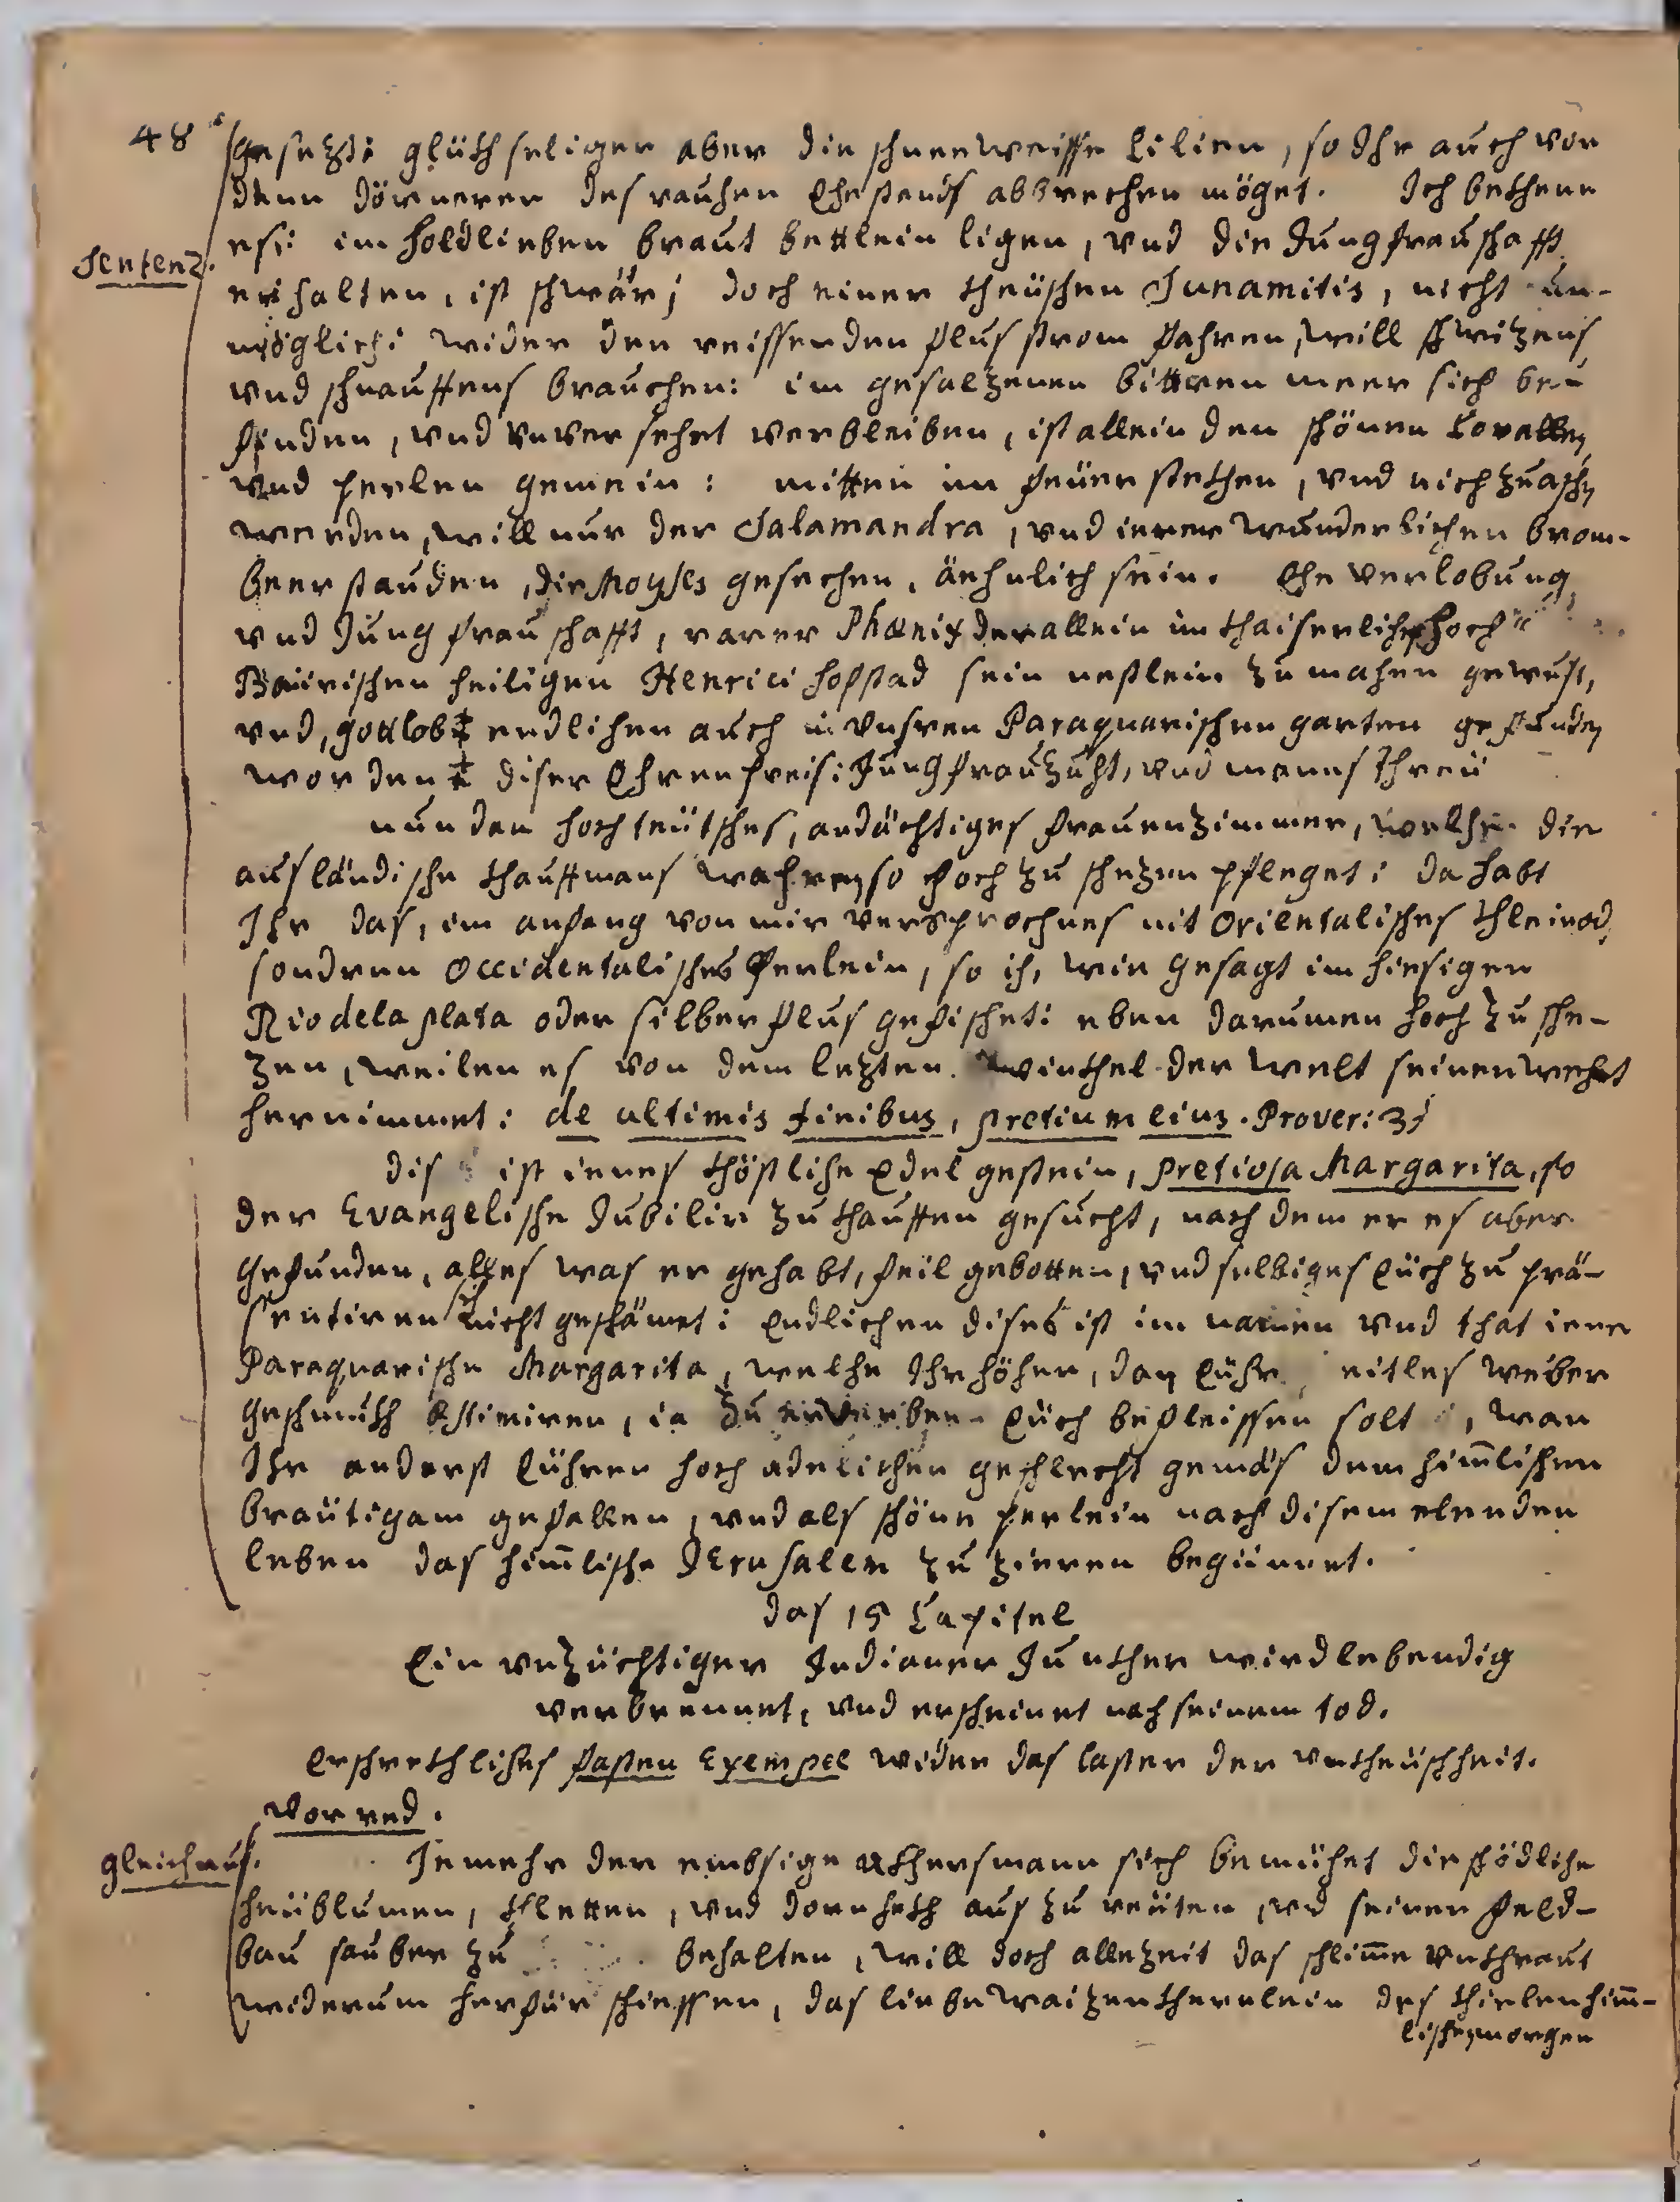 48
gesezt: glükhseliger aber die schneeweisse Lilien, so Ihr auch von
denn dörneren des rauhen Ehestands abbrechen möget. Ich bekhenn
Sentenz.
es: im holdlieben braut bettlein ligen, vnd die Jungfrauschafft
erhalten, ist schwär; doch einer kheüschen Sunamitis, nicht un-
möglich: wider den reissenden flus strom fahren, will schwizens
vnd schnauffens brauchen: im gesalzenen bitteren meer sich be-
finden, vnd vnversehrt verbleiben, ist allein den schönen Corallen
vnd perlen gemein: mitten im feüer stekhen, vnd nich zu aschen
werden, will nur der Salamandra, vnd iener wunderlichen brom-
beerstauden, die Moyses gesechen, äenhlich sein. Ehe verlobung,
vnd Jungfrauschafft, rarer Phaenix der allein im khaiserlichen hoch
Bairischen heiligen Henrici hofstad sein nestlein zu mahen gewust,
vnd, gottlob ‡ endlichen auch in vnsren Paraquarischen garten gefunden
worden ‡ diser Ehrenpreis: Jungfrauzuht, vnd manns threü
nun den hochteütsches, andächtiges frauenzimmer, welche die
ausländische khauffmans wahren so hoch zu schezen pfleget: da habt
Ihr das, im anfang von mir versprochnes nit Orientalisches khleinod,
sondren Occidentalisches Perlein, so ich, wie gesagt im hiesigen
Rio de la plata oder silberflus gefischet: eben darumen hoch zu sche-
zen, weilen es von dem lezten winkhel der welt seinen wehrt
hernimmet: de ultimis finibus, pretium eius. Prover: 31
dis ist ienes khöstliche Edelgestein, pretiosa Margarita, so
der Evangelische Jubilir zu khauffen gesucht, nach dem er es aber
gefunden, alles was er gehabt, feil gebotten, vnd selbiges Eüch zu prä-
sentiren nicht geschämet: Endlichen dises ist im namen vnd that iene
Paraquarische Margarita, welche Ihr höher, dan Eühr eitles weiber
geschmukh Estimiren, ia zu erwerben Eüch befleissen solt, wan
Ihr anderst Eühren hoch adelichen geschlecht gemäs dem him̄lischen
braütigam gefallen, vnd als schöne perlein nach disem elenden
leben das him̄lische JEruSalem zu zieren beginnet.
das 15 Capitel
Ein vnzüchtiger Indianer Junkher wird lebendig
verbrennet, vnd erscheinet nach seinem tod.
Erschrekhliches fasten Exempel wider das laster der vnkheüschheit.
Vorred.
gleichnus.
Je mehr der embsige akhersmann sich bemühet die schödliche
heüblumen, khletten, vnd dornhekh aus zu reüten, vnd seinen feld-
bau sauber zu behalten, will doch allezeit das schlim̄e vnkhraut
widerum herfür schiessen, das liebe waizenkhernlein des khielen him̄-
lischen morgen